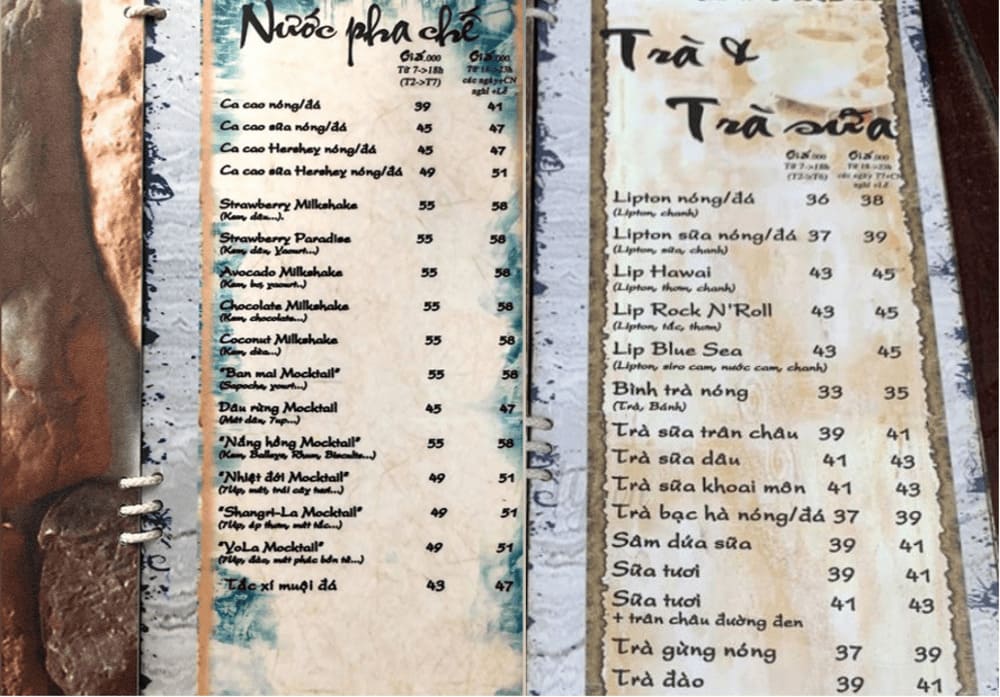 Nước pha chế
Giá.000 Giá.000
Từ 7->18h Từ 18->23h
(T2->T7) các ngày+CN
nghỉ +Lễ
Ca cao nóng/đá 39 41
Ca cao sữa nóng/đá 45 47
Ca cao Hershey nóng/đá 45 47
Ca cao sữa Hershey nóng/đá 49 51
Strawberry Milkshake 55 58
(Kem, dâu...).
Strawberry Paradise 55 58
(Kem, dâu, Yaourt...)
Avocado Milkshake 55 58
(Kem, bơ, yaourt..)
Chocolate Milkshake 55 58
(Kem, chocolate...)
Coconut Milkshake 55 58
(Kem, dừa...)
"Ban mai Mocktail" 55 58
(Sapoche, yourt...)
Dâu rừng Mocktail 45 47
(Mứt dâu, 7up...)
"Nắng hồng Mocktail" 55 58
(Kem, Baileys, Rhum, Biscuits...)
"Nhiệt đới Mocktail" 49 51
(7Up, mứt, trái cây tươi...)
"Shangri-La Mocktail" 49 51
(7Up, ép thơm, mứt tắc...)
"YoLa Mocktail" 49 51
(7Up, dâu, mứt phúc bồn tử...)
Tắc xí muội đá 43 47
Trà &
Trà sữa
Giá.000 Giá.000
Từ 7->18h Từ 18->23h
(T2->T6) các ngày T7+CN
nghỉ +Lễ
Lipton nóng/đá 36 38
(Lipton, chanh)
Lipton sữa nóng/đá 37 39
(Lipton, sữa, chanh)
Lip Hawai 43 45
(Lipton, thơm, chanh)
Lip Rock N'Roll 43 45
(Lipton, tắc, thơm)
Lip Blue Sea 43 45
(Lipton, siro cam, nước cam, chanh)
Bình trà nóng 33 35
(Trà, Bánh)
Trà sữa trân châu 39 41
Trà sữa dâu 41 43
Trà sữa khoai môn 41 43
Trà bạc hà nóng/đá 37 39
Sâm dứa sữa 39 41
Sữa tươi 39 41
Sữa tươi 41 43
+ trân châu đường đen
Trà gừng nóng 37 39
Trà đào 39 41